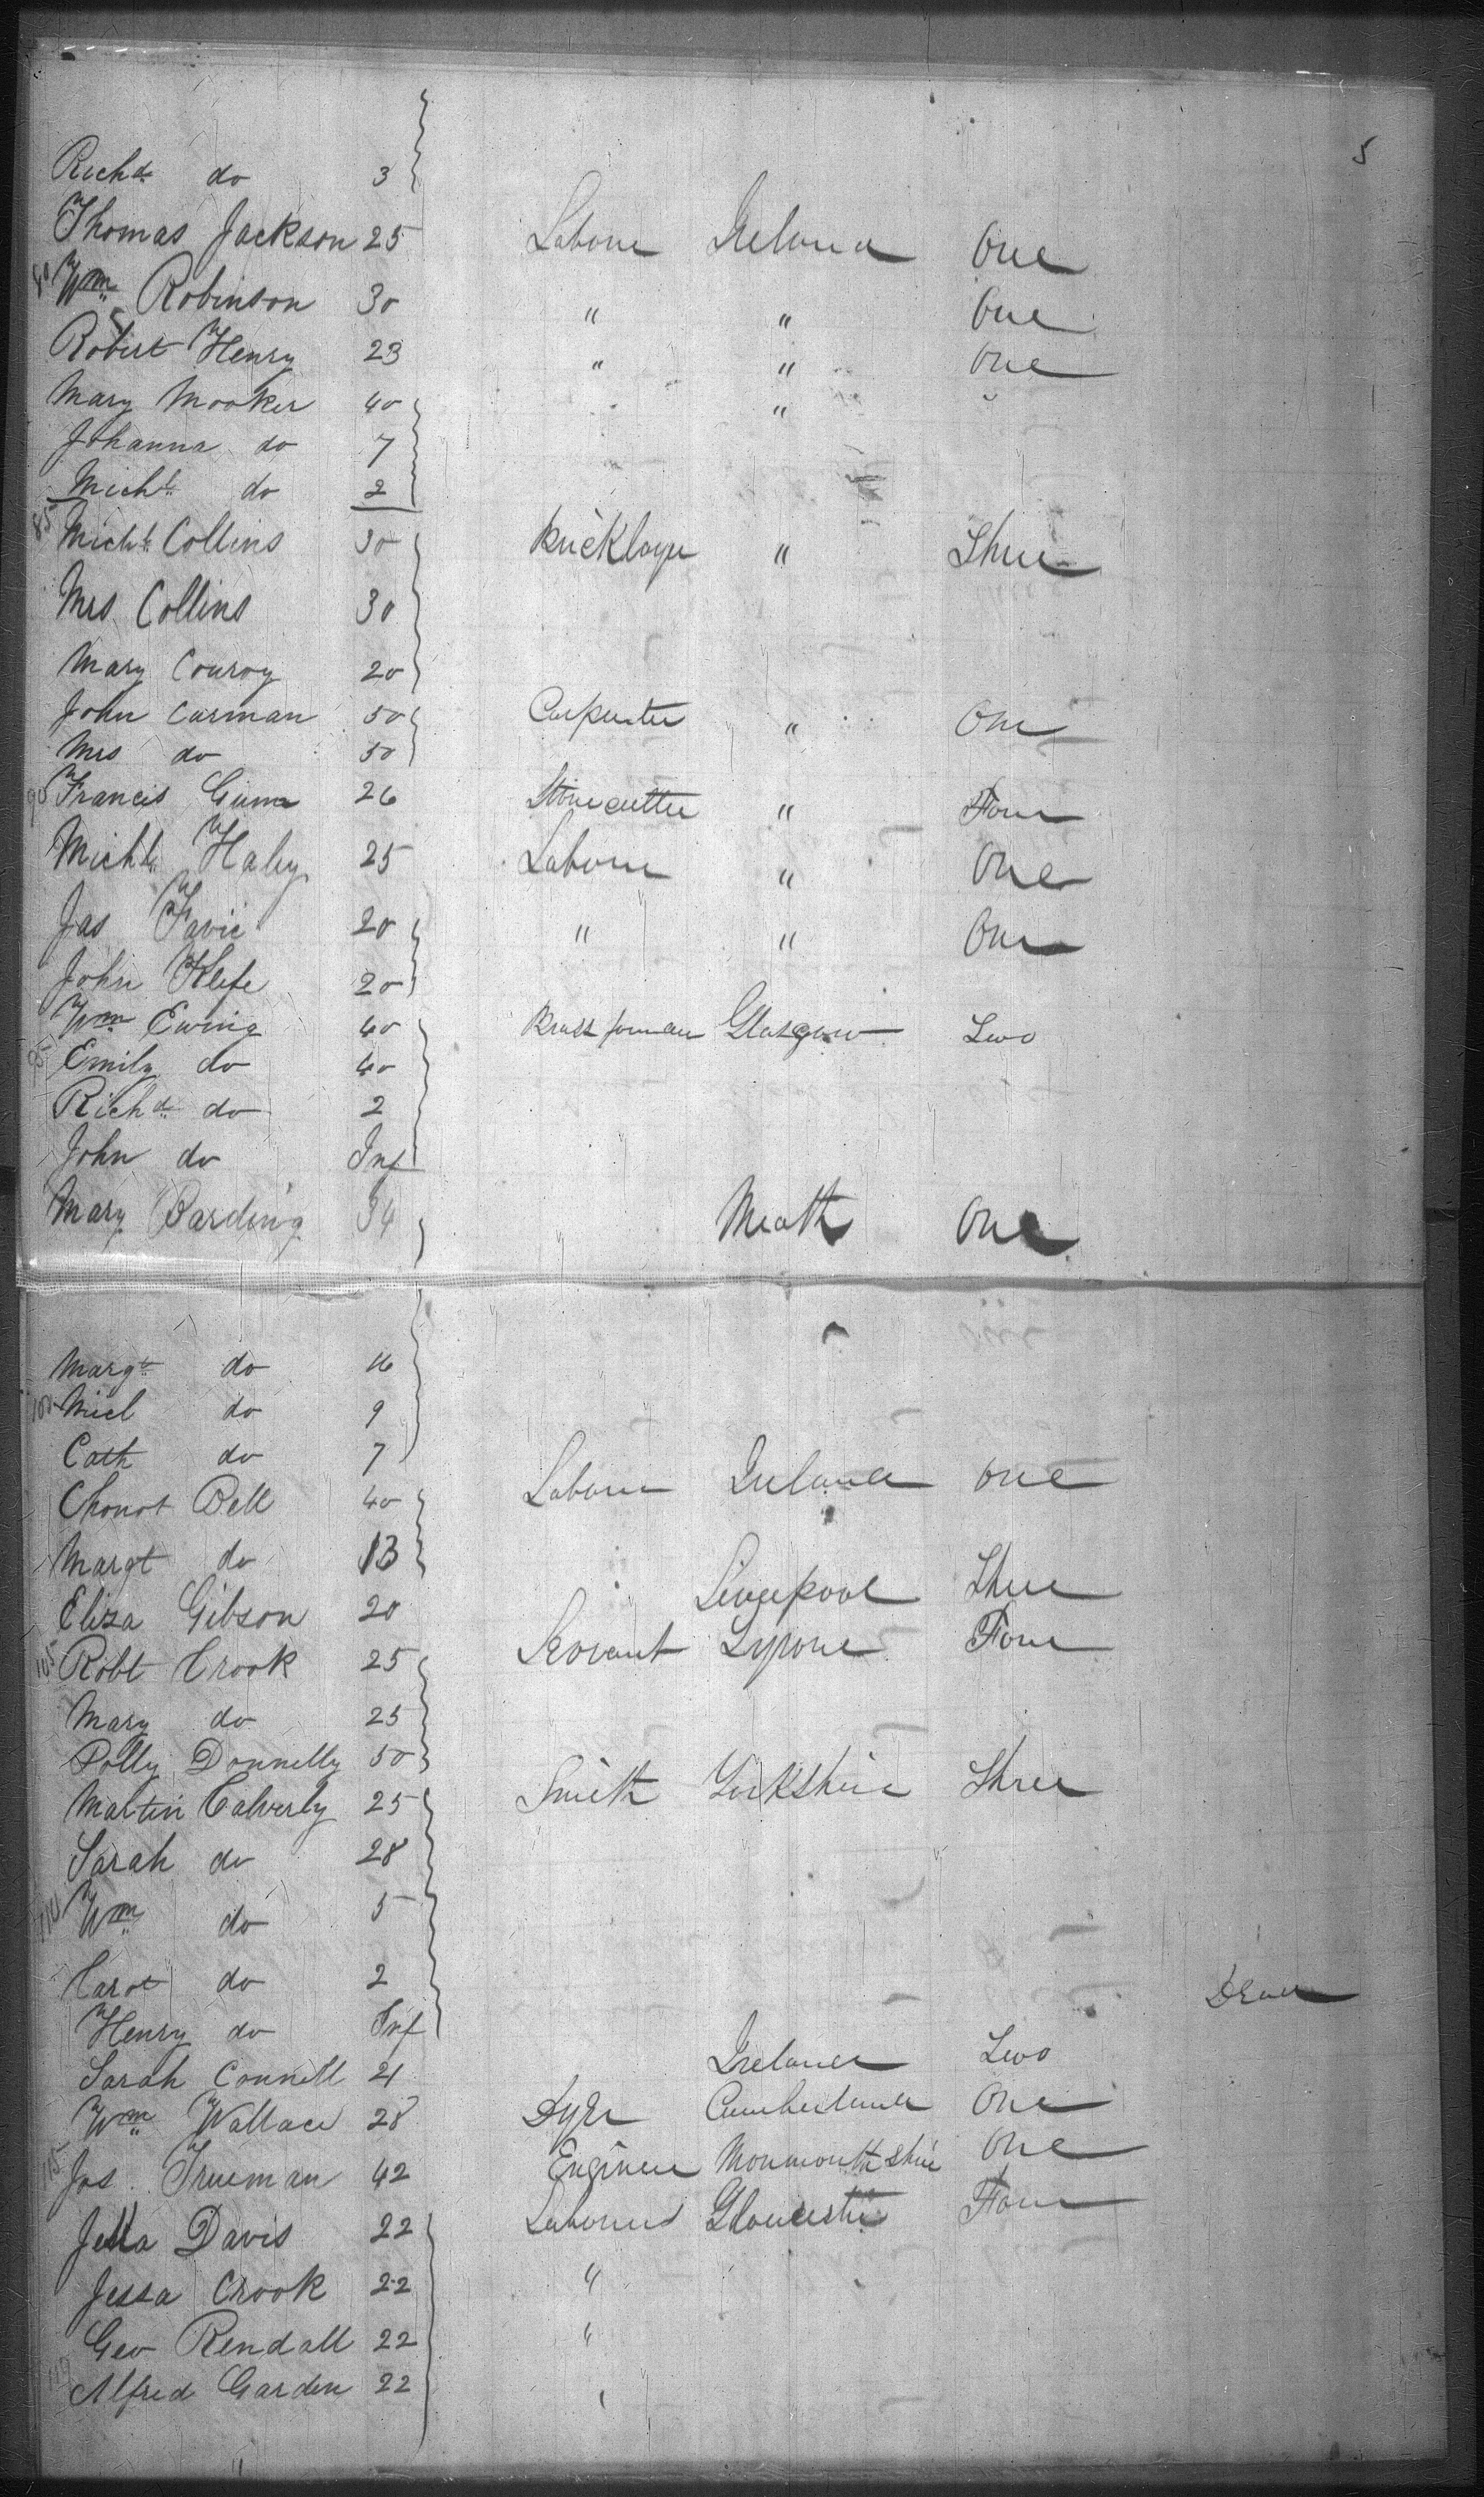 5
Richd do 3
Thomas Jackson 25 Labourer Ireland One
80 Wm Robinson 30 " " One
Robert Henry 23 " " One
Mary Mooker 40 "
Johanna do 7
Michl do 2
85 Michl Collins 30 Bricklayer " Three
Mrs Collins 30
Mary Conroy 20
John Carman 50 Carpenter " One
Mrs do 50
90 Francis Gunn 26 Stonecutter " Four
Michl Haley 25 Labourer " One
Jas 20 " " One
John Klefe 20
Wm Ewing 40 Brass Glasgow Two
95 Emily do 40
Richd do 2
John do Inf
Mary Barding 34 Meath One
Margt do 16
100 Micl do 9
Cath do 7
Bell 40 Labourer Ireland One
Margt do 13
Eliza Gibson 20 Liverpool Three
105 Robt Crook 25 Servant Tyrone Four
Mary do 25
Polly Donnelly 50
Martin Calverly 25 Smith Yorkshire Three
Sarah do 28
110 Wm do 5
do 2
Henry do Inf
Sarah Connell 21 Ireland Two
Wm Wallace 28 Dyer Cumberland One
115 Jos. Trueman 42 Engineer Monmouthshire One
Davis 22 Labourers Gloucester Four
Jessa Crook 22 "
Geo Rendall 22 "
119 Alfred Garden 22 "